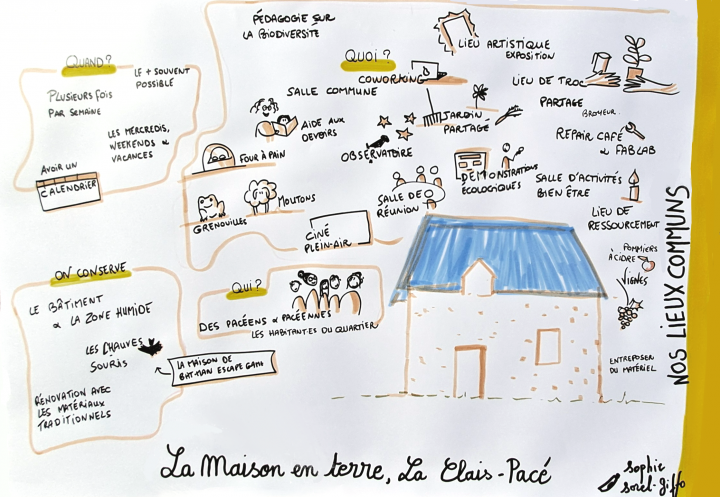 QUAND?
LE + SOUVENT
POSSIBLE
PLUSIEURS FOIS
PAR SEMAINE
LES MERCREDIS,
WEEKENDS &
VACANCES
AVOIR UN
CALENDRIER
PÉDAGOGIE SUR
LA BIODIVERSITÉ
QUOI?
COWORKING
LIEU ARTISTIQUE
EXPOSITION
LIEU DE TROC
PARTAGE
BROYEUR
SALLE COMMUNE
AIDE AUX
DEVOIRS
JARDIN
PARTAGÉ
REPAIR CAFÉ
& FABLAB
FOUR À PAIN
OBSERVATOIRE
DÉMONSTRATIONS
ÉCOLOGIQUES
SALLE D'ACTIVITÉS
BIEN ÊTRE
GRENOUILLES
MOUTONS
SALLE DE
RÉUNION
LIEU DE
RESSOURCEMENT
CINÉ
PLEIN-AIR
POMMIERS
À CIDRE
VIGNES
ENTREPOSER
DU MATÉRIEL
NOS LIEUX COMMUNS
ON CONSERVE
LE BÂTIMENT
& LA ZONE HUMIDE
LES CHAUVES
SOURIS
LA MAISON DE
BATMAN ESCAPE GAME
RÉNOVATION AVEC
LES MATÉRIAUX
TRADITIONNELS
QUI?
DES PACÉENS & PACÉENNES
LES HABITANT·ES DU QUARTIER
La Maison en terre, La Clais-Pacé
sophie
sorel-giffo